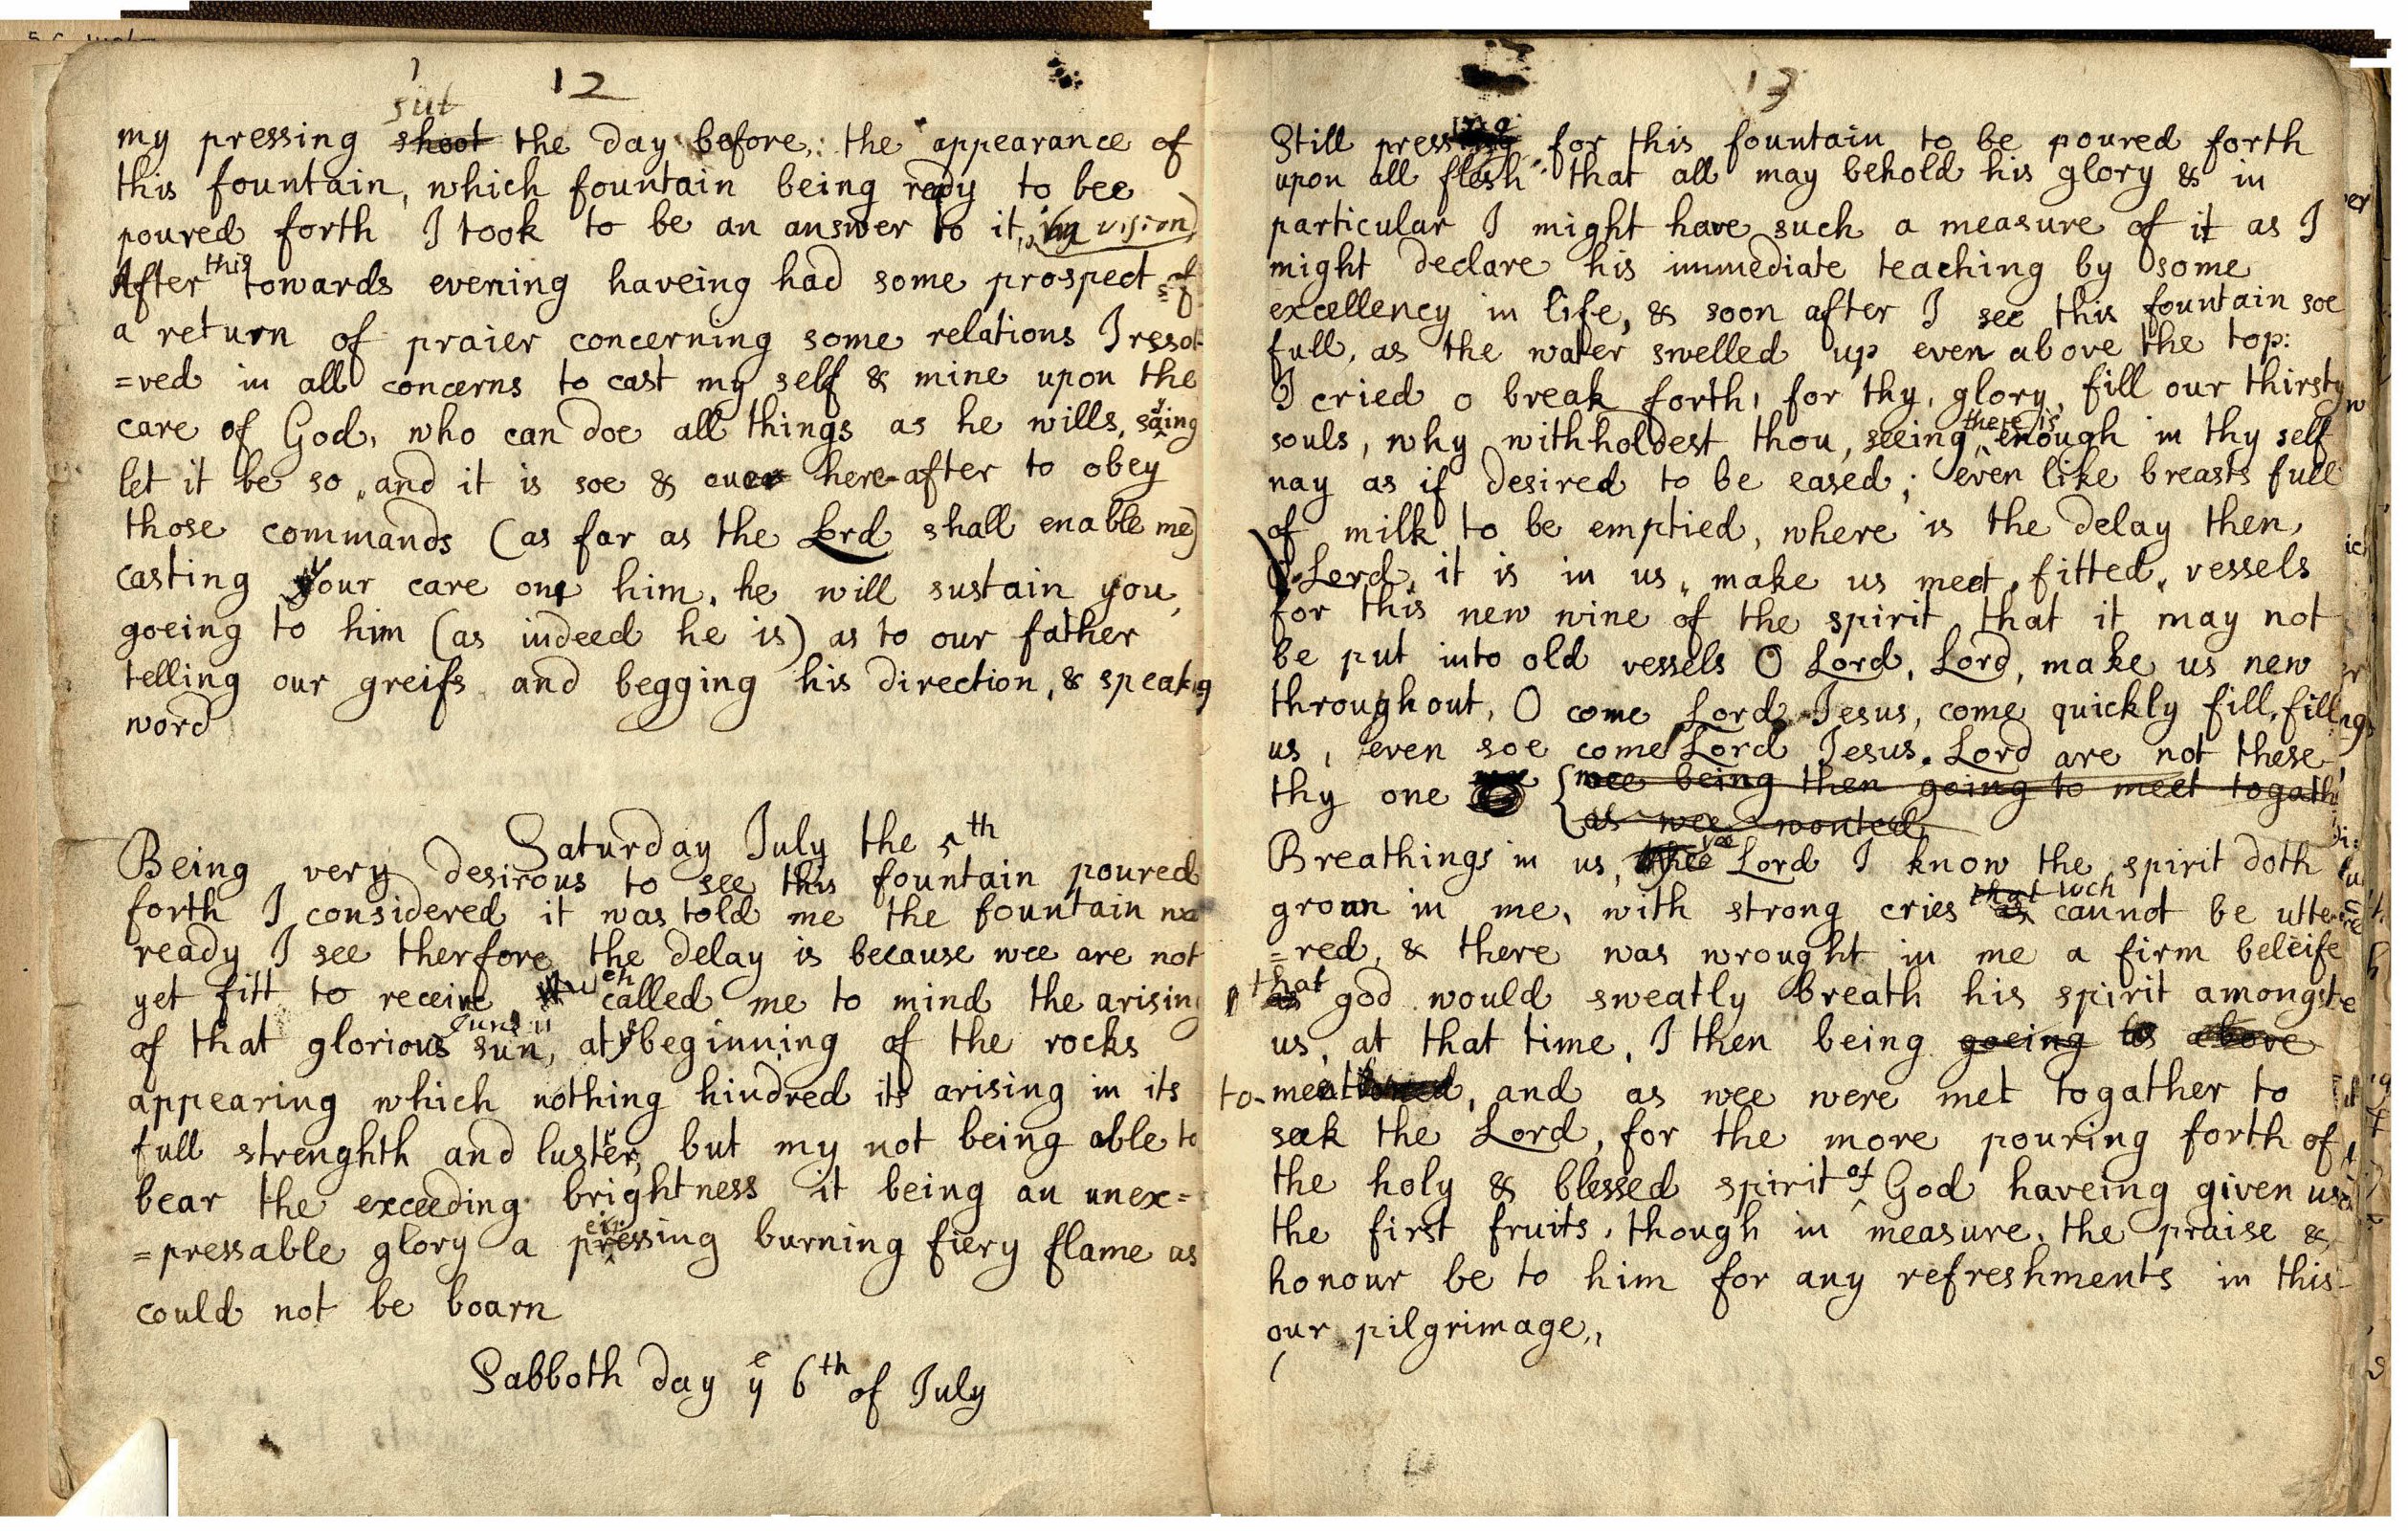 12
sut
my pressing shoot the day before, the appearance of
this fountain, which fountain being redy to bee
poured forth I took to be an answer to it, (in vision)
After this towards evening haveing had some prospect of
a return of praier concerning some relations I resol
=ved in all concerns to cast my self & mine upon the
care of God, who can doe all things as he wills, saying
let it be so, and it is soe & ever here-after to obey
those commands (as far as the Lord shall enable me)
casting your care one him, he will sustain you,
goeing to him (as indeed he is) as to our father
telling our greifs and begging his direction, & speaking
word
Saturday July the 5th
Being very desirous to see this fountain poured
forth I considered it was told me the fountain wa
ready I see therfore the delay is because wee are not
yet fitt to receive wch called me to mind the arising
of that glorious sun, at ye beginning of the rocks
appearing which nothing hindred its arising in its
full strenghth and luster, but my not being able to
bear the exceeding brightness it being an unex=
=pressable glory a peircing burning fiery flame as
could not be boarn
Sabboth day ye 6th of July
13
Still pressing for this fountain to be poured forth
upon all flesh that all may behold his glory & in
particular I might have such a measure of it as I
might declare his immediate teaching by some
excellency in life, & soon after I see this fountain soe
full, as the water swelled up even above the top:
I cried o break forth, for thy, glory, fill our thirsty
souls, why withholdest thou, seeing there is enough in thy self
nay as if desired to be eased; even like breasts full
of milk to be emptied, where is the delay then,
O Lord, it is in us, make us meet, fitted, vessels
for this new wine of the spirit that it may not
be put into old vessels O Lord, Lord, make us new
throughout, O come Lord Jesus, come quickly fill, fill
us, even soe come Lord Jesus. Lord are not these
thy one {wee being then going to meet togath
as wee wonted
Breathings in us, yee Lord I know the spirit doth
groan in me, with strong cries that wch cannot be utte
=red, & there was wrought in me a firm beleife
that god would sweatly breath his spirit amongst
us, at that time, I then being goeing to above
to meet, and as wee were met togather to
seek the Lord, for the more pouring forth of
the holy & blessed spirit of God haveing given us
the first fruits, though in measure, the praise &
honour be to him for any refreshments in this
our pilgrimage,,